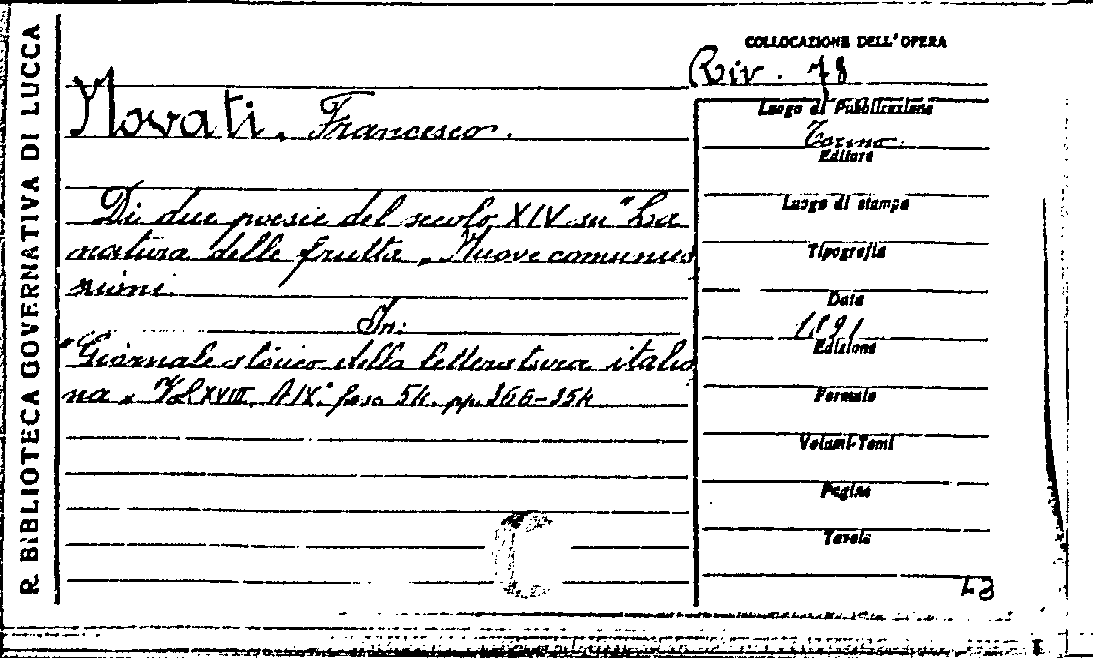 R. BIBLIOTECA GOVERNATIVA DI LUCCA
COLLOCAZIONE DELL'OPERA
Riv. 78
Novati, Francesco.
Di due poesie del secolo XIV su "La
natura delle frutta„ Nuove comunica
zioni.
In:
"Giornale storico della letteratura italia
na„ Vol XVIII. A IX. fasc 54. pp.
Luogo di Pubblicazione
Torino.
Editore
Luogo di stampa
Tipografia
Data
1891
Edizione
Formato
Volumi-Tomi
Pagine
Tavole